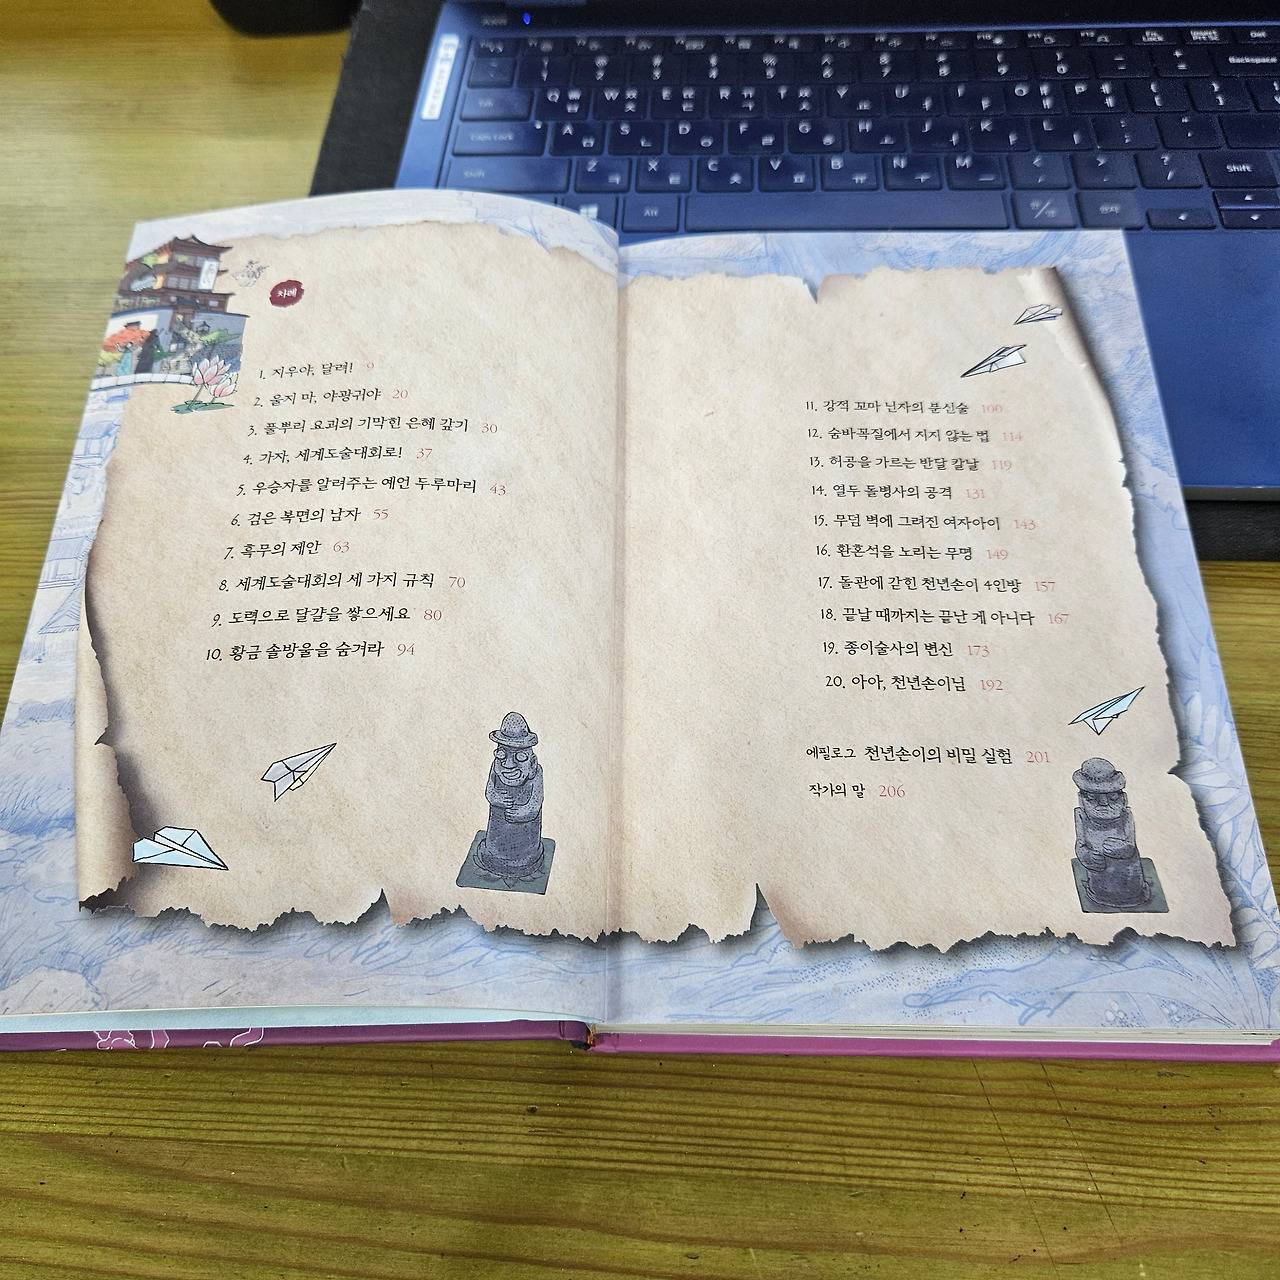 차례
1. 지우야, 달려! 9
2. 울지 마, 야광귀야 20
3. 풀뿌리 요괴의 기막힌 은혜 갚기 30
4. 가자, 세계도술대회로! 37
5. 우승자를 알려주는 예언 두루마리 43
6. 검은 복면의 남자 55
7. 흑무의 제안 63
8. 세계도술대회의 세 가지 규칙 70
9. 도력으로 달걀을 쌓으세요 80
10. 황금 솔방울을 숨겨라 94
11. 강적 꼬마 닌자의 분신술 100
12. 숨바꼭질에서 지지 않는 법 114
13. 허공을 가르는 반달 칼날 119
14. 열두 돌병사의 공격 131
15. 무덤 벽에 그려진 여자아이 143
16. 환혼석을 노리는 무명 149
17. 돌관에 갇힌 천년손이 4인방 157
18. 끝날 때까지는 끝난 게 아니다 167
19. 종이술사의 변신 173
20. 아아, 천년손이님 192
에필로그 천년손이의 비밀 실험 201
작가의 말 206
Backspace
Tab Q W E R T Y U I O P
Caps Lock A S D F G H J K L
Shift Z X C V B N M Shift
Alt 한/영 한자